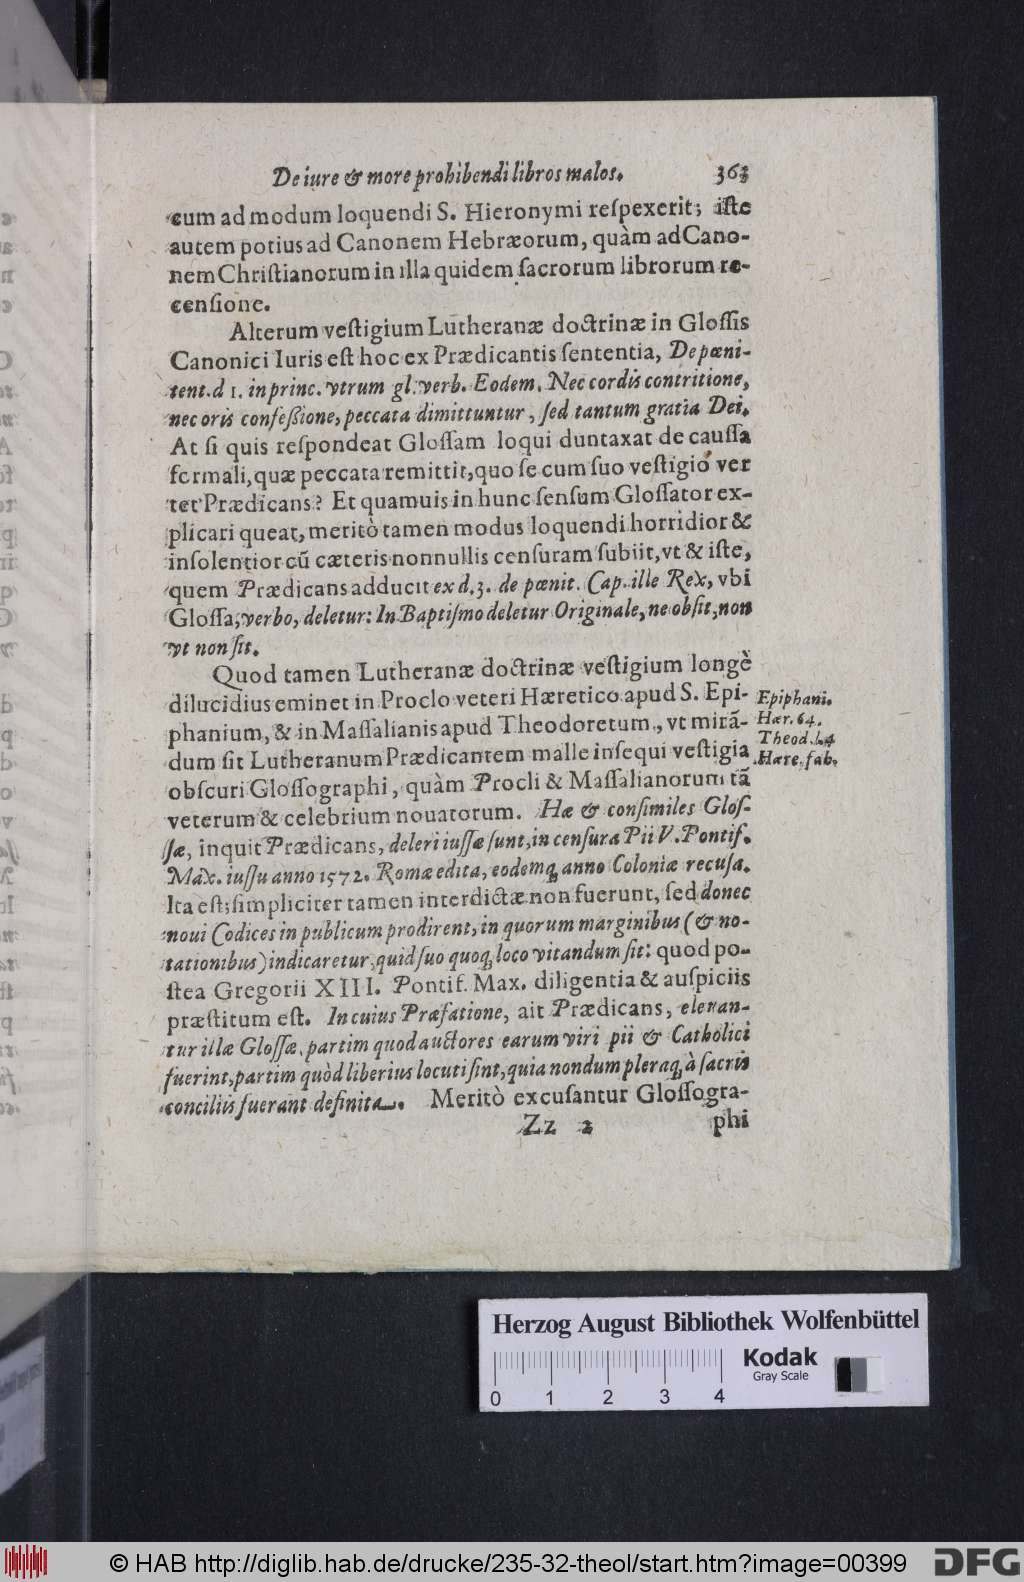 De iure & more prohibendi libros malos. 363
cum ad modum loquendi S. Hieronymi reſpexerit; iſte
autem potius ad Canonem Hebræorum, quàm ad Cano-
nem Chriſtianorum in illa quidem ſacrorum librorum re-
cenſione.
Alterum veſtigium Lutheranæ doctrinæ in Gloſſis
Canonici Iuris eſt hoc ex Prædicantis ſententia, De pœni-
tent. d 1. in princ. vtrum gl. verb. Eodem. Nec cordis contritione,
nec oris confeßione, peccata dimittuntur, ſed tantum gratia Dei.
At ſi quis reſpondeat Gloſſam loqui duntaxat de cauſſa
formali, quæ peccata remittit, quo ſe cum ſuo veſtigio ver
tet Prædicans? Et quamuis in hunc ſenſum Gloſſator ex-
plicari queat, meritò tamen modus loquendi horridior &
inſolentior cū cæteris nonnullis cenſuram ſubiit, vt & iſte,
quem Prædicans adducit ex d. 3. de pœnit. Cap. ille Rex, vbi
Gloſſa, verbo, deletur: In Baptiſmo deletur Originale, ne obſit, non
vt non ſit.
Quod tamen Lutheranæ doctrinæ veſtigium longè
dilucidius eminet in Proclo veteri Hæretico apud S. Epi-
phanium, & in Maſſalianis apud Theodoretum, vt mirā-
dum ſit Lutheranum Prædicantem malle inſequi veſtigia
obſcuri Gloſſographi, quàm Procli & Maſſalianorum tā
veterum & celebrium nouatorum. Hæ & conſimiles Gloſ-
ſæ, inquit Prædicans, deleri iuſſæ ſunt, in cenſura Pii V. Pontif.
Max. iuſſu anno 1572. Romæ edita, eodemq; anno Coloniæ recuſa.
Ita eſt; ſimpliciter tamen interdictæ non fuerunt, ſed donec
noui Codices in publicum prodirent, in quorum marginibus (& no-
tationibus) indicaretur, quid ſuo quoq; loco vitandum ſit: quod po-
ſtea Gregorii XIII. Pontif. Max. diligentia & auſpiciis
præſtitum eſt. In cuius Præfatione, ait Prædicans, eleuan-
tur illæ Gloſſæ, partim quod auctores earum viri pii & Catholici
fuerint, partim quòd liberius locuti ſint, quia nondum pleraq; à ſacris
conciliis fuerant definita. Meritò excuſantur Gloſſogra-
Zz 2 phi
Epiphani.
Hær. 64.
Theod. l. 4
Hære. fab.
Herzog August Bibliothek Wolfenbüttel
Kodak
Gray Scale
0 1 2 3 4
© HAB http://diglib.hab.de/drucke/235-32-theol/start.htm?image=00399
DFG